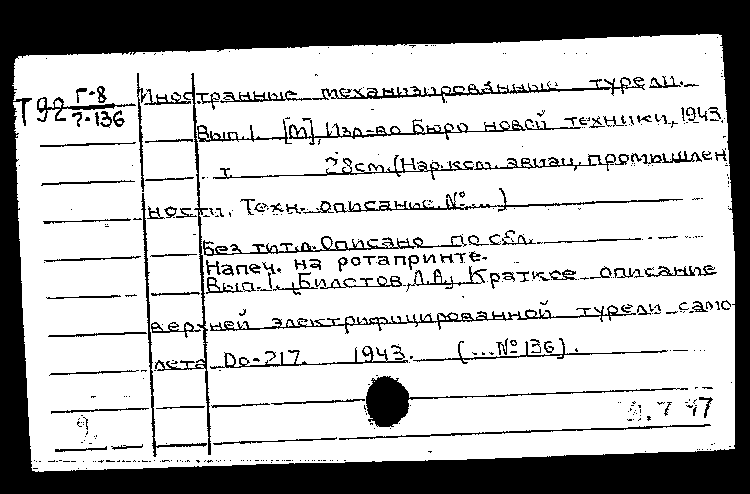 Т92 Г-8
7-136
Иностранные механизированные турели.
Вып.1. [М], Изд-во Бюро новой техники, 1943.
т. 28см. (Нар.ком. авиац. промышлен
ности. Техн. описание. №...)
Без тит.л. Описано по обл.
Напеч. на ротапринте.
Вып.1. [Билстов, Л.А.] Краткое описание
верхней электрифицированной турели само-
лета До-217. 1943. (...№136).
9.
7 47